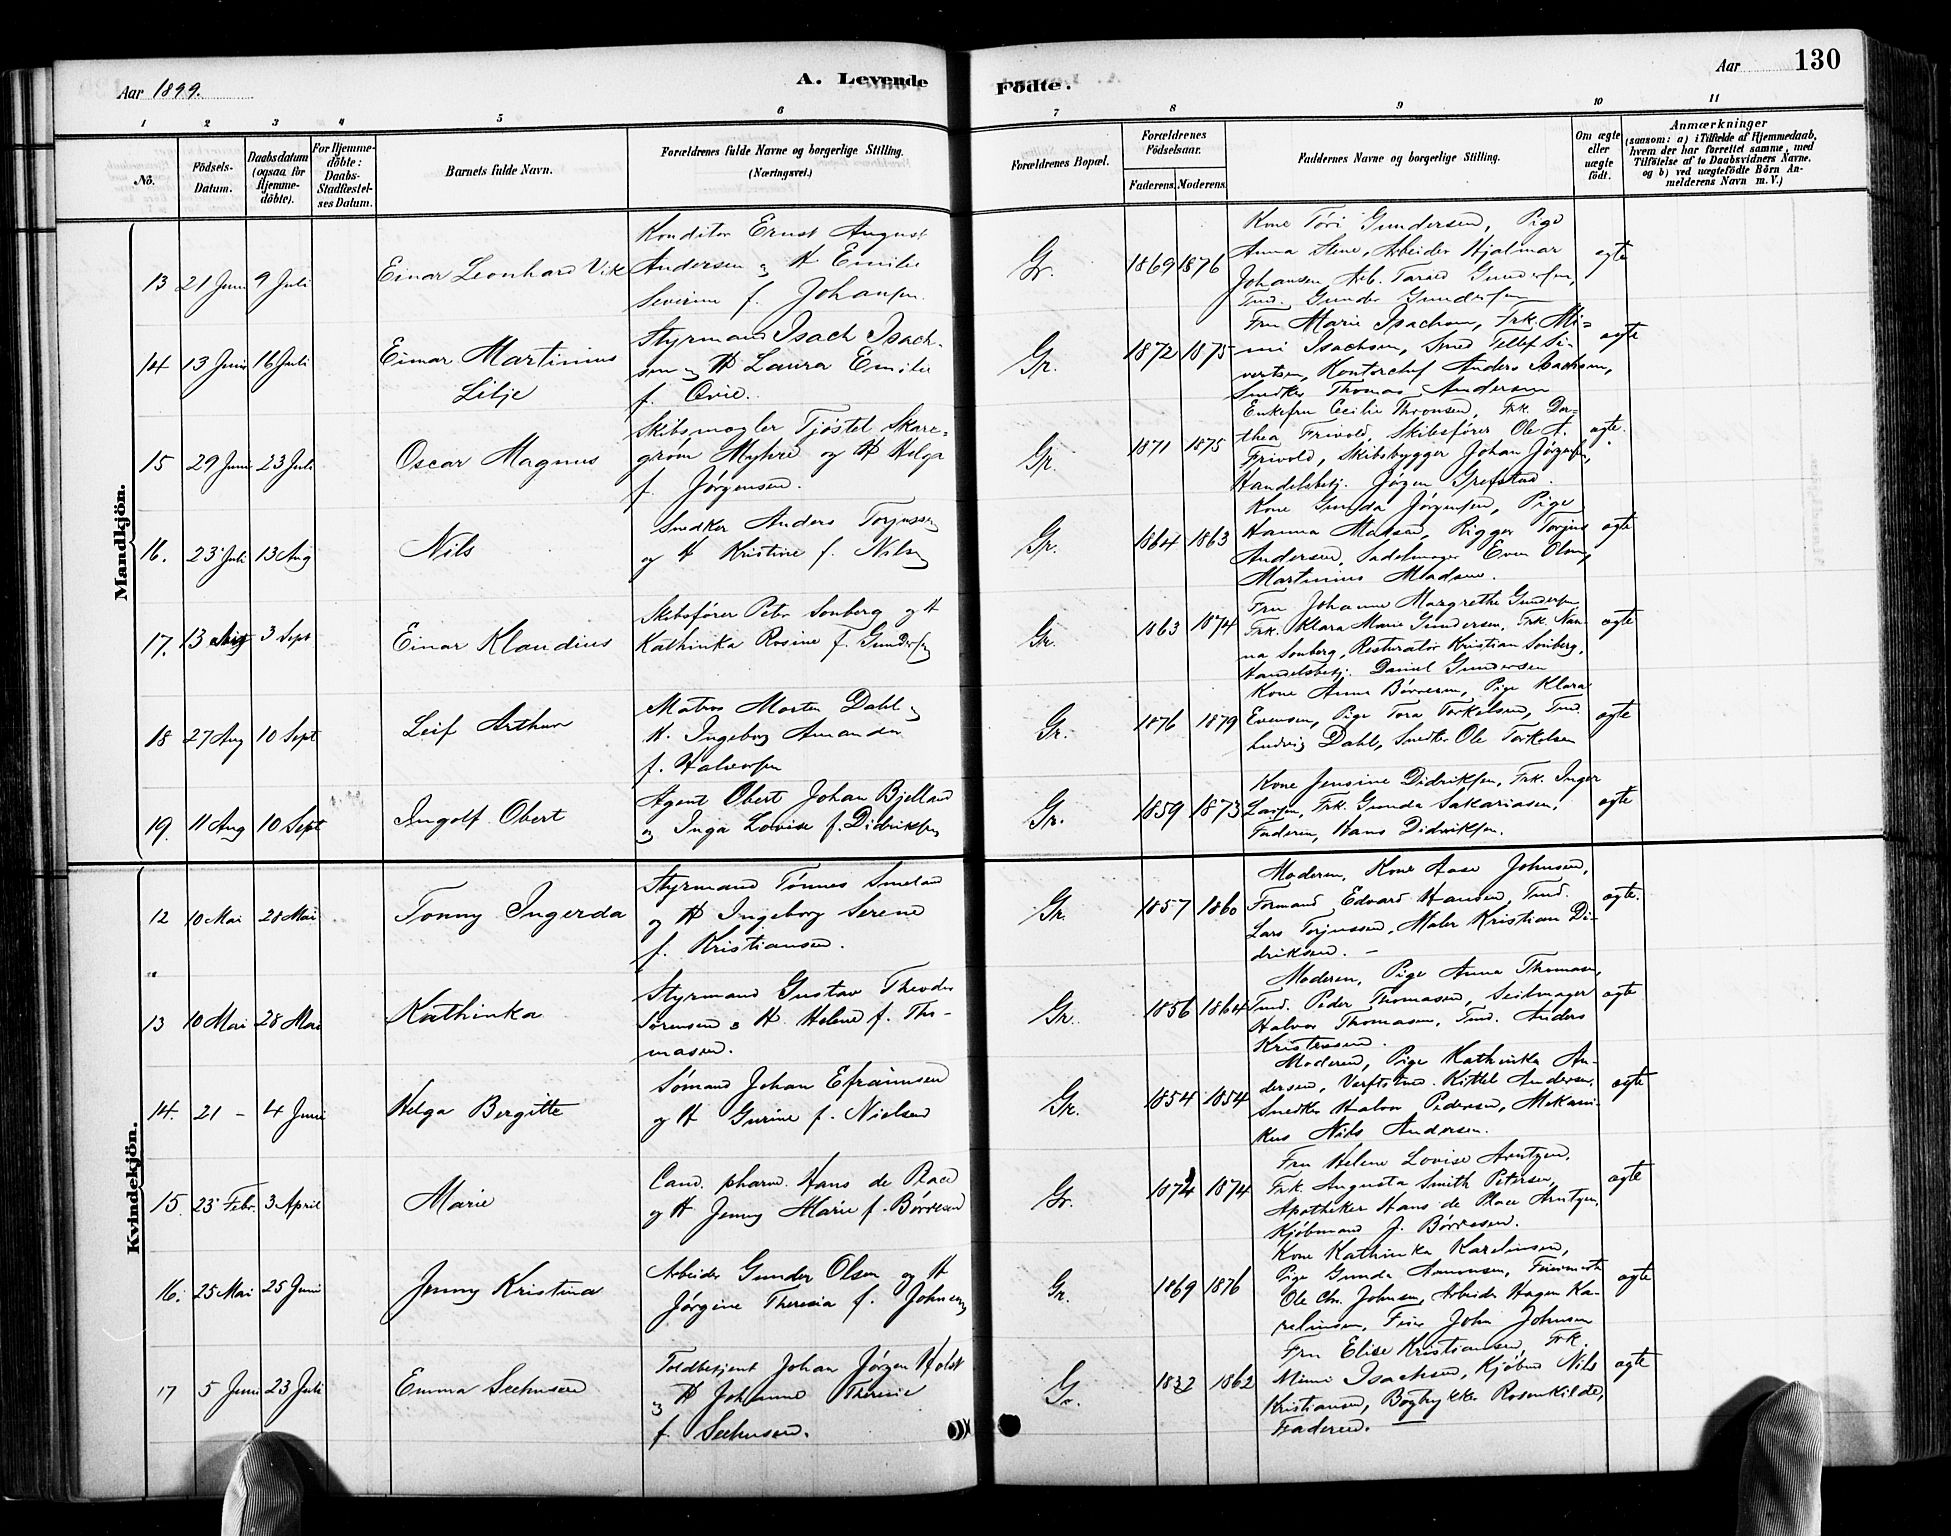 Aar 1899.
A. Levende
Födte.
Aar 130
1 2 3 4 5 6 7 8 9 10 11
No.
Födsels-Datum.
Daabsdatum (ogsaa for Hjemme-döbte).
For Hjemme-döbte: Daabs-Stadfæstel-ses Datum.
Barnets fulde Navn.
Forældrenes fulde Navne og borgerlige Stilling.
(Næringsvei.)
Forældrenes Bopæl.
Forældrenes Födselsaar.
Faderens. Moderens.
Faddernes Navne og borgerlige Stilling.
Om ægte eller uægte födt.
Anmærkninger
(saasom: a) i Tilfælde af Hjemmedaab, hvem der har forrettet samme, med Tilföielse af to Daabsvidners Navne, og b) ved uægtefödte Börn An-melderens Navn m. V.)
Mandkjön.
13 21 Juni 9 Juli
Einar Leonhard Vik
Konditor Ernst August
Andersen og H Emilie
Severine f. Johansen.
Gr.
1869 1876
Kone Tóri Gundersen, Pige
Anna Stene, Arbeider Hjalmar
Johansen, Arb. Tarald Gundersen,
Tmd. Gunder Gundersen
ægte
14 13 Juni 16 Juli
Einar Martinius
Lilje
Styrmand Isach Isach-
sen og H Laura Emilie
f. Ovie.
Gr.
1872 1875
Fru Marie Isachsen, Frk. Mi-
mi Isachsen, Smed Tellef Si-
vertsen, Kontorchef Anders Isachsen,
Snedker Thomas Andersen
ægte
15 29 Juni 23 Juli
Oscar Magnus
Skibsmægler Tjöstel Skare-
grom Myhre og H Helga
f. Jørgensen.
Gr.
1871 1875
Enkefru Cecilie Thronsen, Frk. Dor-
thea Frivold, Skibsfører Ole A.
Frivold, Skibsbygger Johan Jörgensen,
Handelsbetj. Jörgen Grefstad.
ægte.
16. 23 Juli 13 Aug
Nils
Snedker Anders Torjussen
og H Kristine f. Nilsen
Gr.
1864 1863
Kone Gunda Jørgensen, Pige
Hanna Madsen, Rigger Torjus
Andersen, Sadelmager Even Olsen,
Martinius Madsen.
ægte
17. 13 Aug 3 Sept
Einar Klaudius
Skibsfører Peter Sonberg og H
Kathinka Rosine f. Gundersen
Gr.
1863 1874
Fru Johanne Margrethe Gundersen
Frk. Klara Marie Gundersen, Frk. Nan-
na Sonberg, Restauratør Kristian Sonberg,
Handelsbetj. Daniel Gundersen
ægte
18 27 Aug 10 Sept
Leif Arthur
Matros Morten Dahl og
H. Ingeborg Amanda
f. Halvorsen
Gr.
1876 1879
Kone Anna Börresen, Pige Klara
Evensen, Pige Tora Torkelsen, Tmd.
Ludvig Dahl, Snedker Ole Torkelsen
ægte
19. 11 Aug 10 Sept
Ingolf Obert
Agent Obert Johan Bjelland
og Inga Lovise f. Didriksen
Gr.
1859 1873
Kone Jensine Didriksen, Frk. Inger
Larsen, Frk. Gunda Sakariasen,
Faderen, Hans Didriksen.
ægte
Kvindekjön.
12 10 Mai 28 Mai
Tonny Ingerda
Styrmand Tönnes Smeland
og H Ingeborg Serene
f. Kristiansen.
Gr.
1857 1860
Moderen, Kone Aase Johnsen,
Formand Edvard Hansen, Tmd.
Lars Torjussen, Maler Kristian Di-
driksen. –
ægte.
13 10 Mai 28 Mai
Kathinka
Styrmand Gustav Theodor
Sørensen og H. Helene f. Tho-
masen.
Gr.
1856 1864
Moderen, Pige Anna Thomasen,
Tmd. Peder Thomasen, Seilmager
Halvor Thomasen, Tmd. Anders
Kristensen.
ægte
14. 21 – 4 Juni
Helga Bergitte
Sømand Johan Efraimsen
og H Gurine f. Nielsen
Gr.
1854 1854
Moderen, Pige Kathinka An-
dersen, Verftstmd. Kittel Andersen,
Snedker Halvor Pedersen, Mekani-
kus Nils Andersen.
ægte
15. 23 Febr. 3 April
Marie
Cand. pharm. Hans de Place
og H Jenny Marie f. Børresen
Gr.
1874
Fru Helene Lovise Arntzen,
Frk. Augusta Smith Petersen,
Apotheker Hans de Place Arntzen,
Kjøbmand J. Börresen.
ægte
16. 25 Mai 25 Juni
Jenny Kristina
Arbeider Gunder Olsen og H
Jörgine Theresia f. Johnsen
Gr.
1869 1876
Kone Kathinka Karelinsen,
Pige Gunda Amonsen, Feiermester
Ole Chr. Johnsen, Arbeider Hagen Ka-
relinsen, Feier John Johnsen
ægte
17 5 Juni 23 Juli
Emma Seehusen
Toldbetjent Johan Jörgen Holst
og H Johanne Therese
f. Seehusen.
Gr.
1862
Fru Elise Kristiansen, Frk.
Mimi Isachsen, Kjøbmd Nils
Kristiansen, Bogtrykker Rosenkilde,
Faderen.
ægte